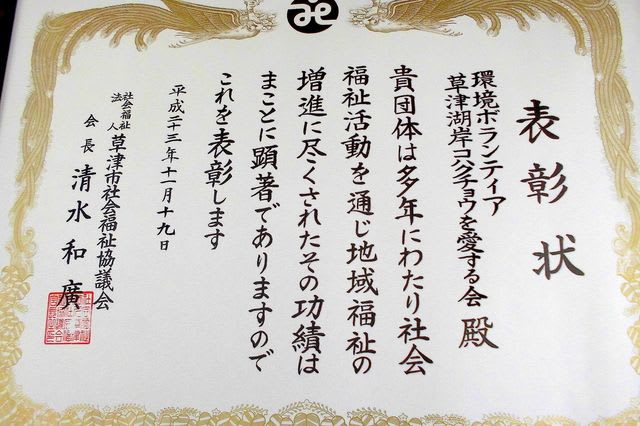 表彰状
環境ボランティア
草津湖岸コハクチョウを愛する会 殿
貴団体は多年にわたり社会
福祉活動を通じ地域福祉の
増進に尽くされたその功績は
まことに顕著でありますので
これを表彰します
平成二十三年十一月十九日
社会福祉法人 草津市社会福祉協議会
会長 清水和廣